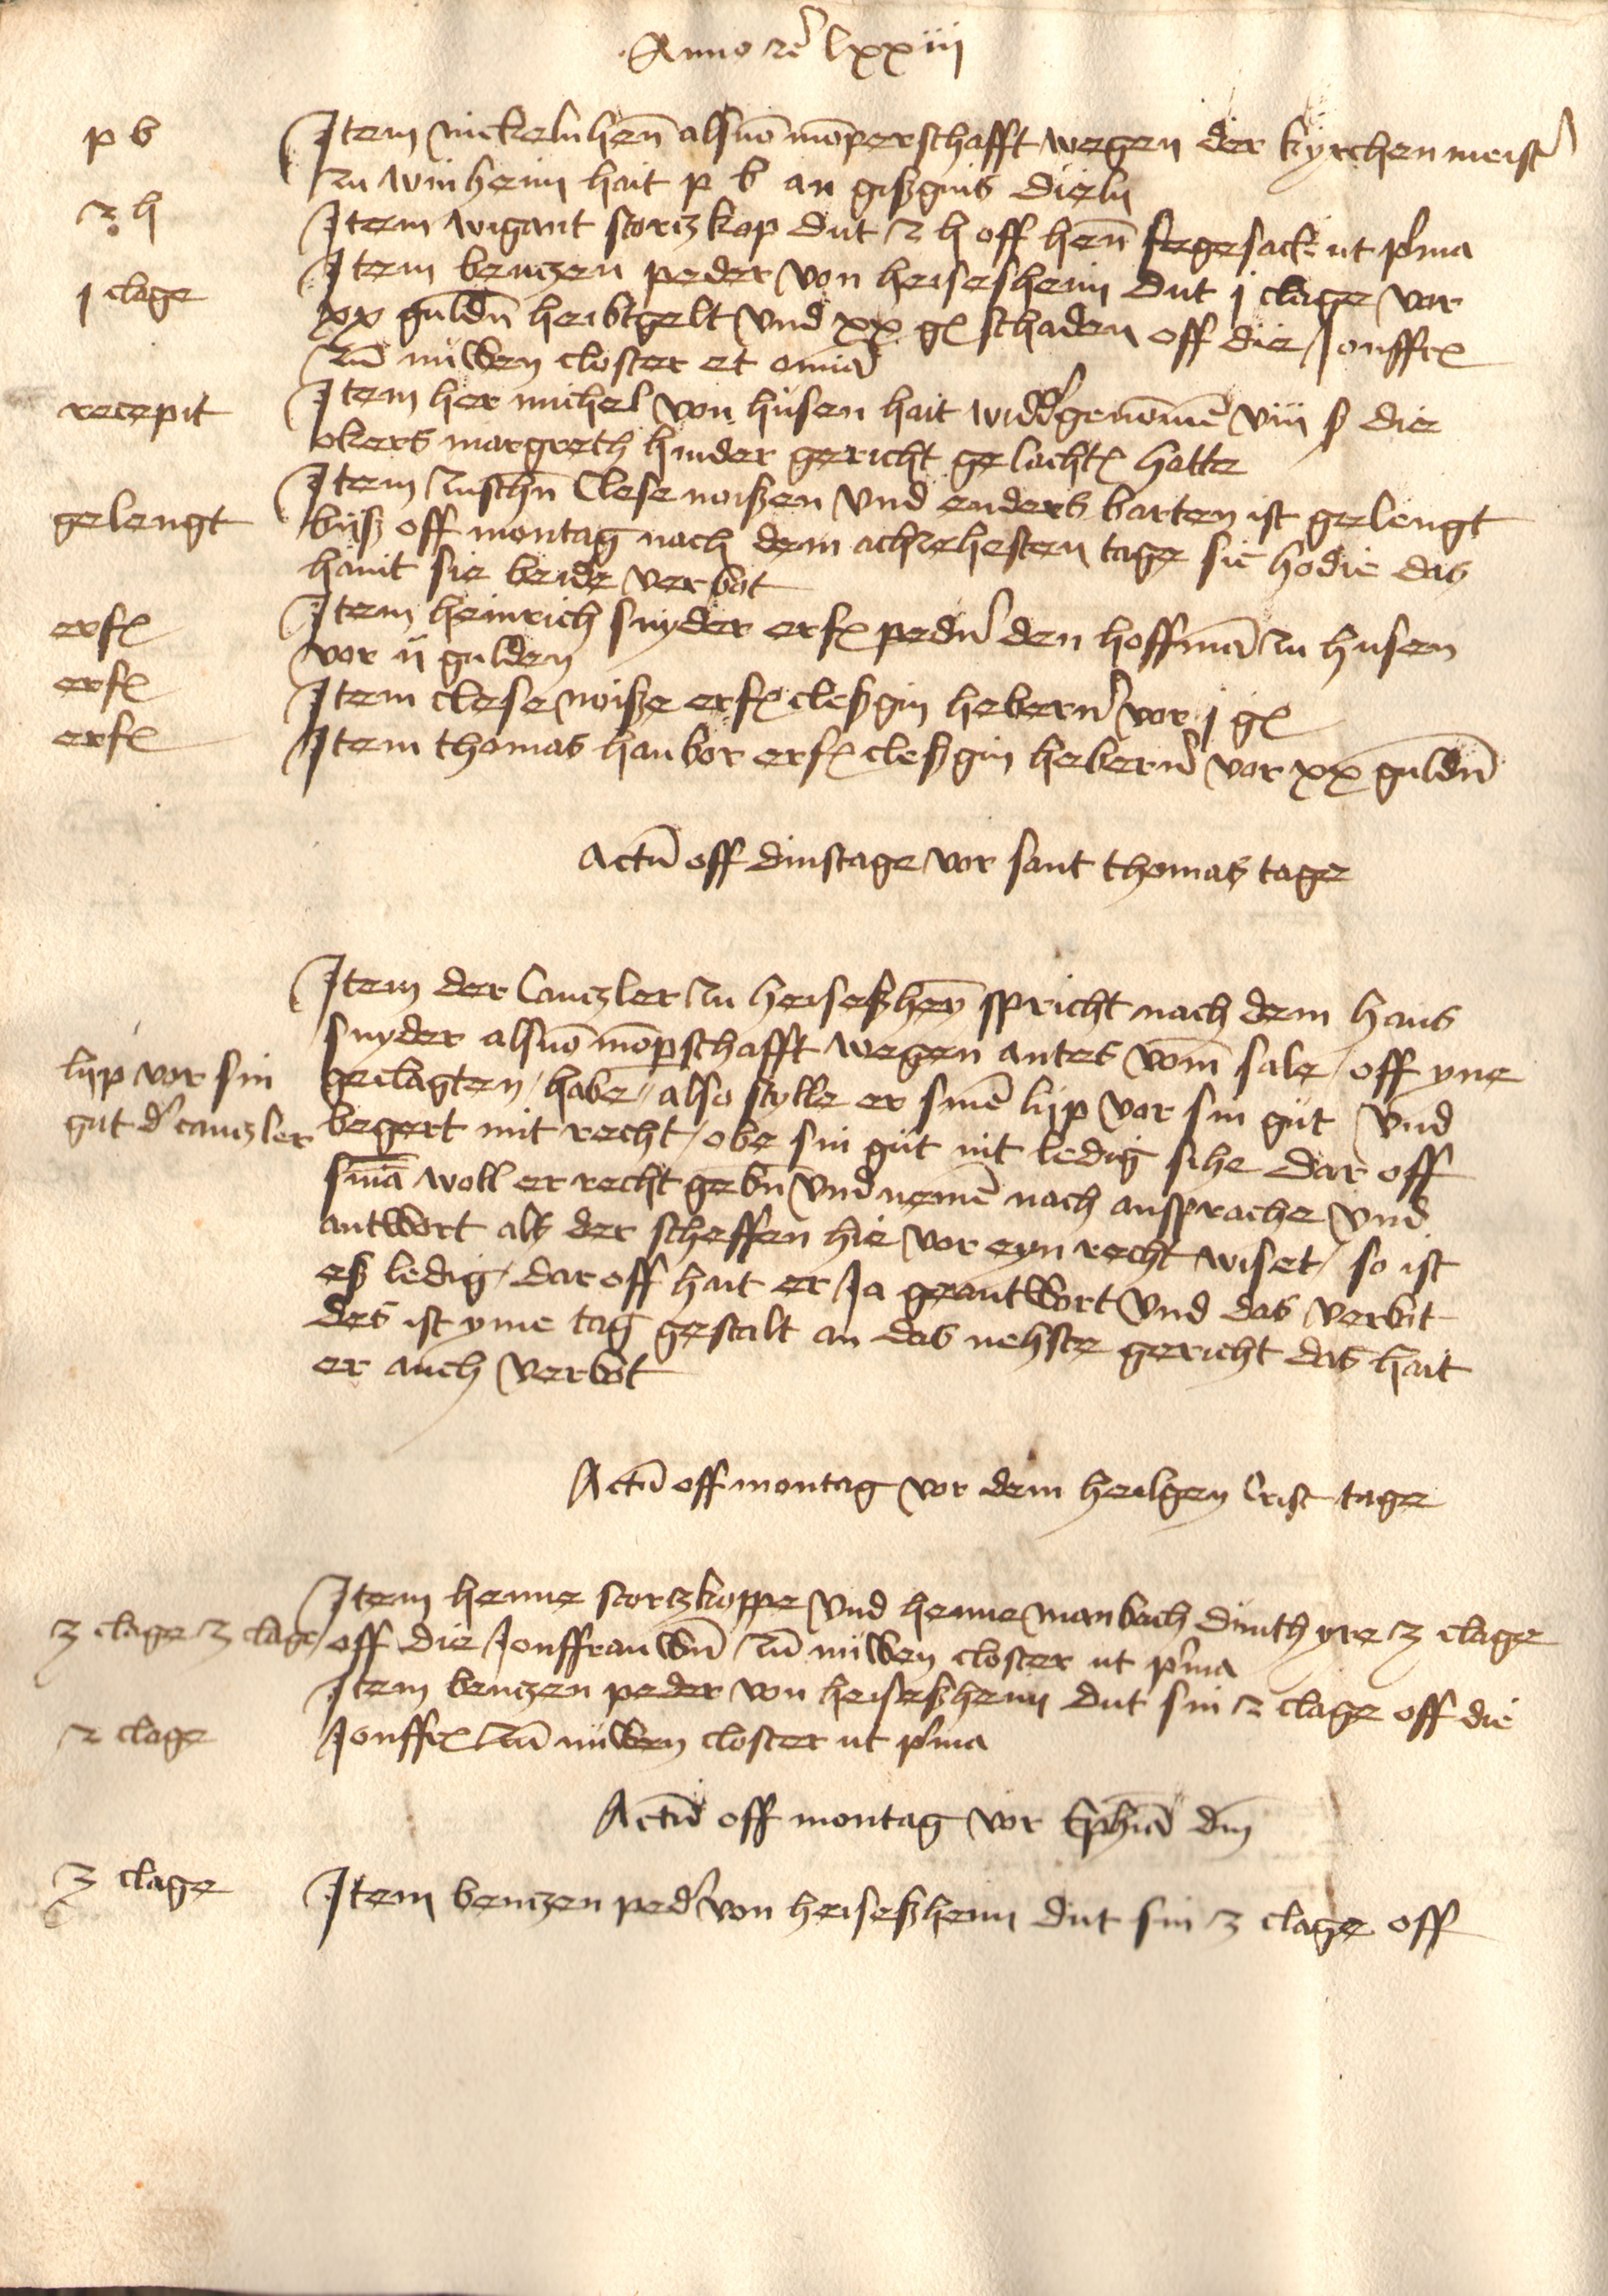 Anno rē lxxiij
p b
Item nickeln henn̄ als vō mōperschafft wegen der kyrchenmeist̄
zu winheim hait p b an gißguls dieln
2 h
Item wigant stortzkop dut 2 h off henn̄ fegesack ut p̄ma
Item bentzen peder von heisesheim dut j clage vor
j clage
xx guldn̄ heubtgelt vnd xx gl schaden off die Jonffr
zūm nuwen closter et om̄ia
recepit
Item her michel von husen hait widd̄ genom̄e viij ß die
okers margreth hinder gericht gelacht hatte
Item zuschn̄ Clese noißen vnd enders barten ist gelengt
gelengt
biß off montag nach dem achzehesten tage sie hodie das
hānt sie beide verbot
erf
Item heinrich snyder erf pedn̄ den hoffman̄ zu husen
vor ij gulden
erf
Item clese noiße erf cleßgin hebern̄ vor j gl
erf
Item thomas haubor erf cleßgin hebern̄ vor xx guldn̄
Actū off dinstage vor sant thomas tage
Item der Cantzler zu heiseßhey̅ spricht nach dem Hans
snyder als vō mōp̱schafft wegen antes vom̄ sale / off yne
geclagten / habe / also stelle er sine̅ lijp vor sin gut vnd
lijp vor sin
gut d̄ cantzler
begert mit recht / obe sin gut nit ledig sihe dar off
sin̄a woll er recht gebn̄ vnd neme̅ nach ansprache vnd
antwort als der scheffen hie vor eyn recht wiset / so ist
eß ledig / dar off hait er Ja geantwort vnd das verbot
des ist yme tag gestalt an das nehste gericht das hait
er auch verbot
Actū off montag vor dem heilgen Crist tage
Item henne stortzkoppe vnd henne manbach dunth yre 3 clage
3 clage 3 clage
off die Jonffrauwn̄ zūm nuwen closter ut p̄ma
Item bentzen peder von heiseßheim dut sin 2 clage off die
2 clage
Jonffr zūm nuwen closter ut p̄ma
Actū off montag vor Eph̄ia dn̄j
3 clage
Item bentzen ped̄ von heiseßheim dut sin 3 clage off